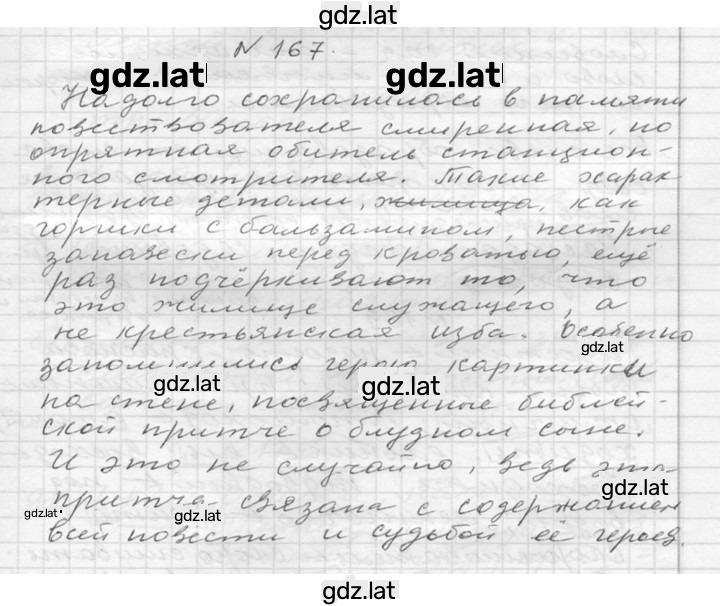 gdz.lat
N 167.
gdz.lat gdz.lat
Надолго сохранилась в памяти
повествователя смиренная, но
опрятная обитель станцион-
ного смотрителя. Такие харак
терные детали, жилища, как
горшки с бальзамином, пестрые
занавески перед кроватью, ещё
раз подчёркивают то, что
это жилище служащего, а
не крестьянская изба. Особенно
gdz.lat
запомнились герою картинки
gdz.lat gdz.lat
на стене, посвященные библей-
ской притче о блудном сыне.
И это не случайно, ведь эта
gdz.lat
притча связана с содержанием
gdz.lat gdz.lat
всей повести и судьбой её героев.
gdz.lat